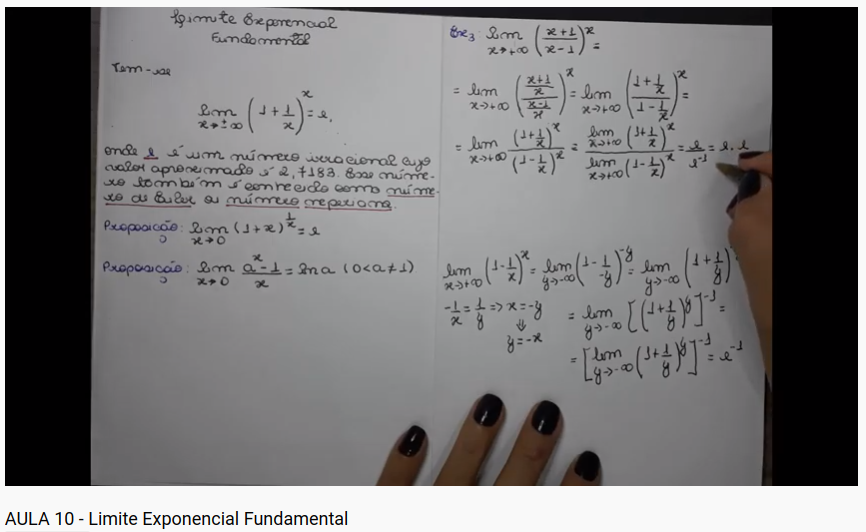 Limite Exponencial
Fundamental
Tem-se
lim x→±∞ (1+1/x)^x = e,
onde e é um número irracional cujo
valor aproximado é 2,7183. Esse núme-
ro também é conhecido como núme-
ro de Euler ou número neperiano.
Proposição: lim x→0 (1+x)^(1/x) = e
Proposição: lim x→0 (a^x-1)/x = ln a (0<a≠1)
Ex3: lim x→+∞ ((x+1)/(x-1))^x =
= lim x→+∞ (((x+1)/x)/((x-1)/x))^x = lim x→+∞ ((1+1/x)/(1-1/x))^x =
= lim x→+∞ (1+1/x)^x/(1-1/x)^x = lim x→+∞ (1+1/x)^x / lim x→+∞ (1-1/x)^x = e/e^-1 = e. e
lim x→+∞ (1-1/x)^x = lim y→-∞ (1-1/-y)^-y = lim y→-∞ (1+1/y)
-1/x = 1/y => x=-y
⇓
y=-x
= lim y→-∞ [(1+1/y)^y]^-1 =
= [lim y→-∞ (1+1/y)^y]^-1 = e^-1
AULA 10 - Limite Exponencial Fundamental